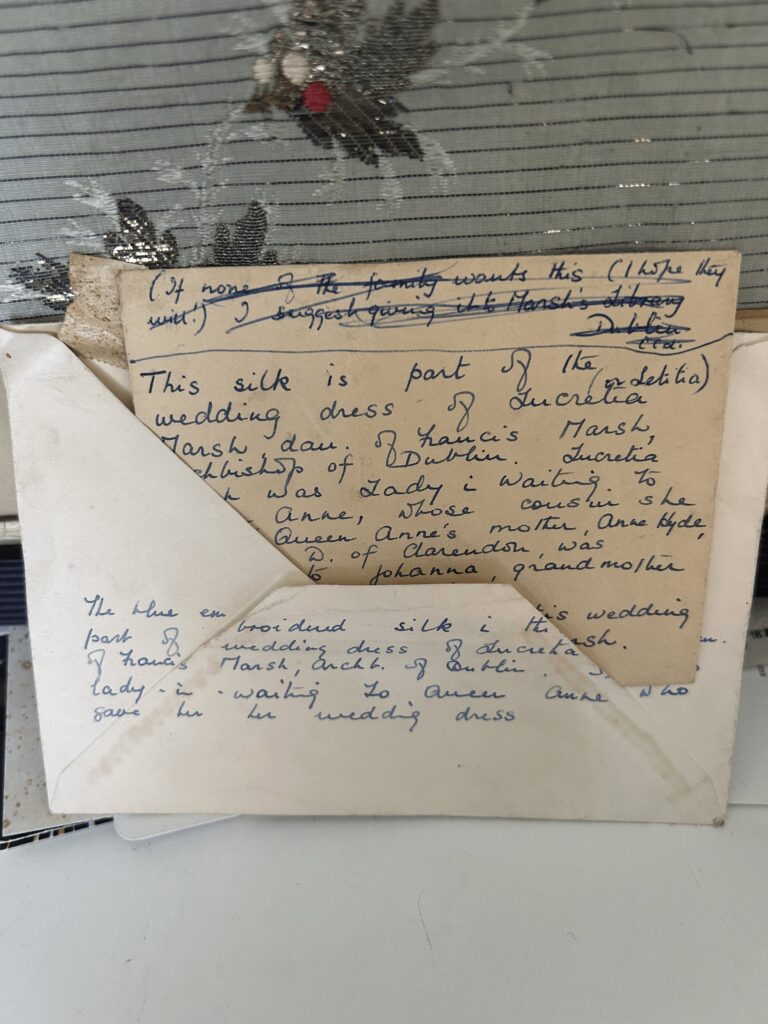 (If none of the family wants this (I hope they
will!) I suggest giving it to Marsh's Library
Dublin
This silk is part of the
wedding dress of Lucretia (or Letitia)
Marsh, dau. of Francis Marsh,
chbishop of Dublin. Lucretia
h was Lady i waiting to
Anne, whose cousin she
Queen Anne's mother, Anne Hyde,
D. of Clarendon, was
to Johanna, grandmother
The blue em broidered silk i this wedding
part of wedding dress of Lucretia Marsh.
of Francis Marsh, Archb. of Dublin.
lady-in-waiting to Queen Anne who
gave her her weddig dress